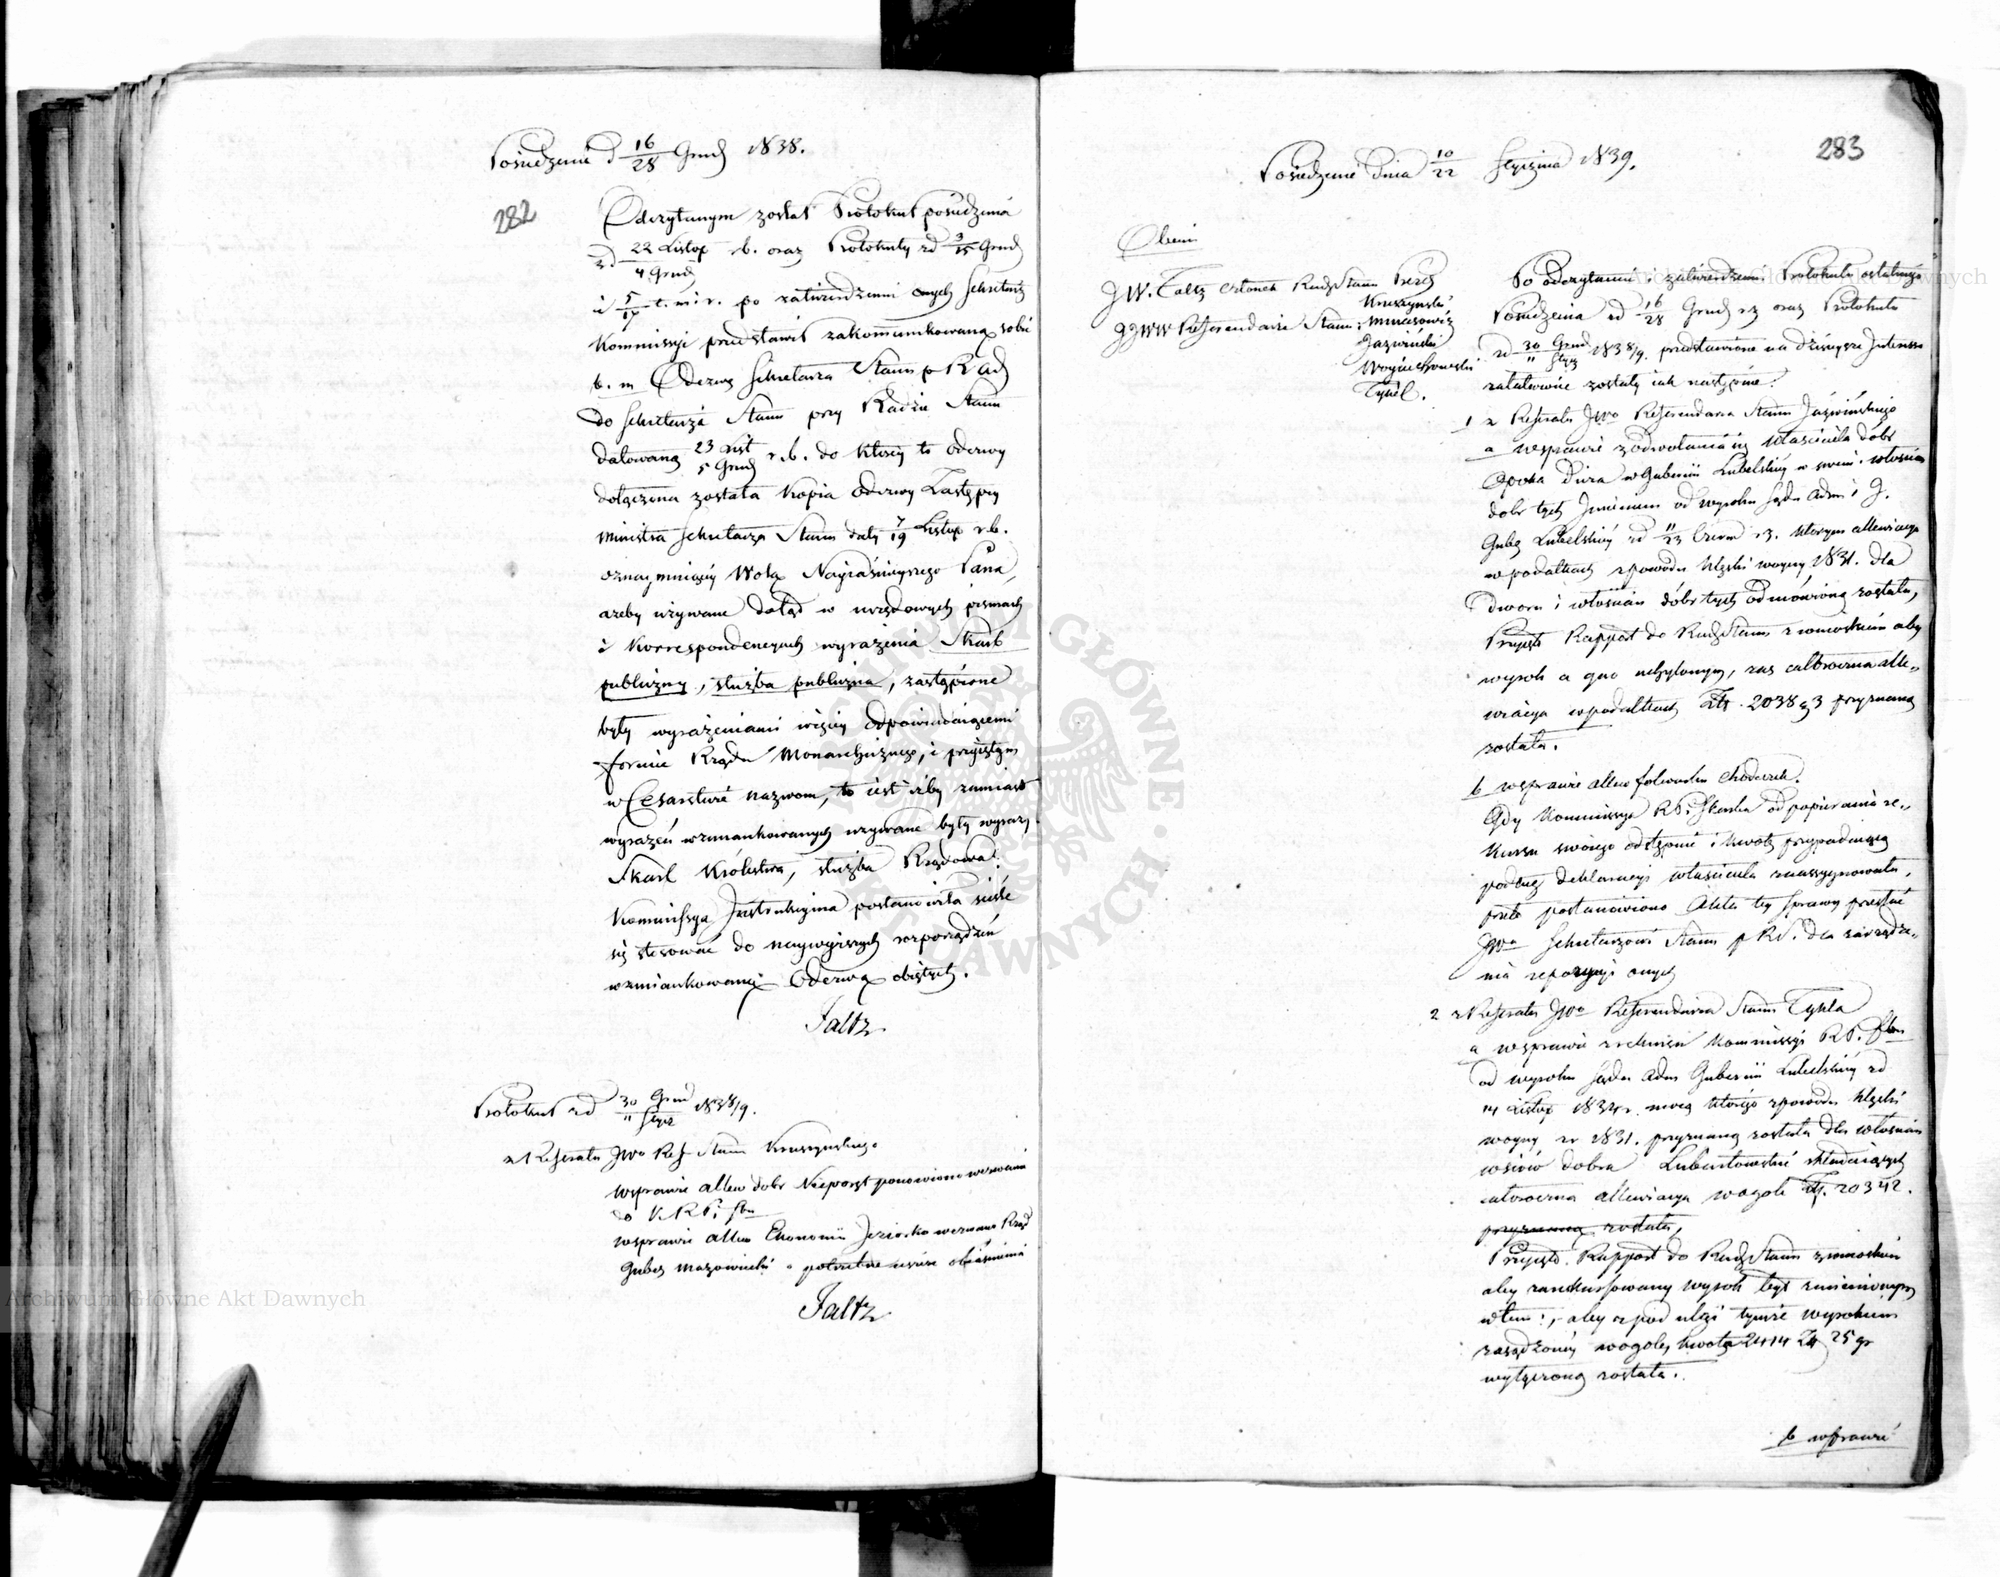 Posiedzenie d 16/28 Grud 1838.
282
Odczytanym został Protokuł posiedzenia
zd 22 Listop / 4 Grud r.b. oraz Protokuły zd 3/15 Grud
i 5/17 t. m i r. po zatwierdzeniu onych Sekretarz
Kommissyi przedstawił zakommunikowaną sobie
b. m Odezwę Sekretarza Stanu p Rad
do Sekretarza Stanu przy Radzie Stanu
datowaną 23 List / 5 Grud r.b. do którey to odezwy
dołączona została kopia odezwy Zastępcy
Ministra Sekretarza Stanu daty 7/19 Listop r.b.
oznaymniaiący Wolą Nayiaśnieyszego Pana,
ażeby używane dotąd w urzędowych pismach
i korrespondencyach wyrażenia Skarb
publiczny, służba publiczna, zastąpione
były wyrażeniami więcey odpowiadaiącemi
formie Rządu Monarchicznego, i przyiętym
w Cesarstwie nazwom, to iest iżby zamiast
wyrażeń wzmiankowanych używane były wyrazy
Skarb Królestwa, służba Rządowa.
Kommissya Instrukcyina postanowiła ściśle
się stosować do naywyższych rozporządzeń
wzmiankowaną Odezwą obiętych.
Faltz
Protokuł zd 30 Grud / 11 Stycz 1838/9.
z Referatu JWo Ref Stanu Kruszyńskiego
wsprawie allew dobr Nieporęt ponowiono wezwanie
do K. R. P. i Sbu
wsprawie allew Ekonomii Jeziorko wezwano Rząd
Guber Mazowiecki o potrzebne ieszcze obiaśnienia
Faltz
283
Posiedzenie dnia 10/22 Stycznia 1839.
Obecni
JW. Faltz Członek Rady Stanu Prezyd
JJWW Referendarze Stanu: Kruszyński
Minasowicz
Jaźwiński
Woyciechowski
Tykel.
Po odczytaniu i zatwierdzeniu Protokułu ostatniego
Posiedzenia zd 16/28 Grud rz oraz Protokułu
zd 30 Grud / 11 Stycz 1838/9. przedstawione na dzisieysze Interessa
załatwione zostały iak następuie:
1 z Referatu JWo Referendarza Stanu Jaźwińskiego
a wsprawie z odwołania się Właściciela dóbr
Opoka Duża w Gubernii Lubelskiey w swem i włościan
dobr tych Imieniem od wyroku Sądu Adm: G.
Guber Lubelskiey zd 11/23 Czerw rz. którym allewiacya
w podatkach zpowodu klęski woyny 1831. dla
dworu i włościan dóbr tych odmówioną została,
Przyięto Rapport do Rady Stanu z wnioskiem aby
wyrok a quo uchylonym, zaś całoroczna alle-
wiacya w podatkach Złt. 2038 g 3 przyznaną
została.
b wsprawie allew folwarku Chodeczek.
Gdy Kommissya R. P. i Skarbu od popierania re-
kursu swoiego odstąpiła i kwotę przypadaiącą
podług deklaracyi właściciela zaassygnowała,
przeto postanowiono Akta tey sprawy przesłać
JWo Sekretarzowi Stanu p RS. dla zarządze-
nia repozycyi onych
2 z Referatu JWo Referendarza Stanu Tykla
a wsprawie z rekursu Kommissyi R. P. i Sbu
od wyroku Sądu Adm Gubernii Lubelskiey zd
14 Listop 1834 r. mocą którego zpowodu klęski
woyny zr 1831. przyznaną została dla włościan
wsiów dobra Lubartowskie składaiących
całoroczna allewiacya wogole Złt. 20342.
przyznaną została,
Przyięto Rapport do Rady Stanu z wnioskiem
aby zarekursowany wyrok był zmienionym
wtem:, aby zpod ulgi tymże wyrokiem
zasądzoney wogole kwota 2414 Zł 25 gr
wyłączoną została.
b wsprawie